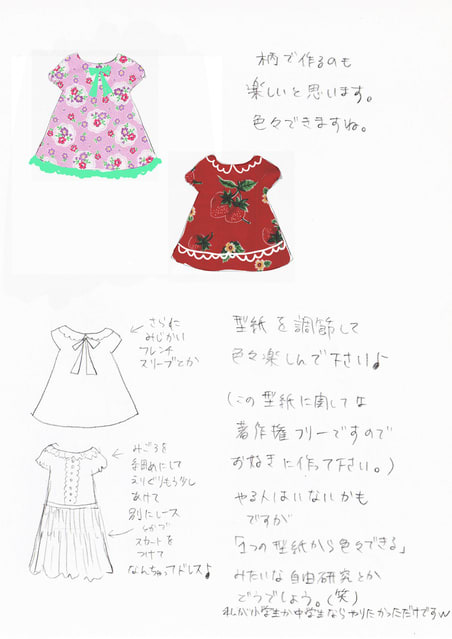 柄で作るのも
楽しいと思います。
色々できますね。
さらに
みじかい
フレンチ
スリーブとか
型紙を調節して
色々楽しんで下さい♪
(この型紙に関しては
著作権フリーですので
お好きに作って下さい。)
みごろを
細めにして
えりぐりもう少し
あけて
別にレース
スカートを
つけて
なんちゃってドレス♪
やる人はいないかも
ですが
「1つの型紙から色々できる」
みたいな自由研究とか
どうでしょう。(笑)
私が小学生か中学生ならやりたかっただけですw